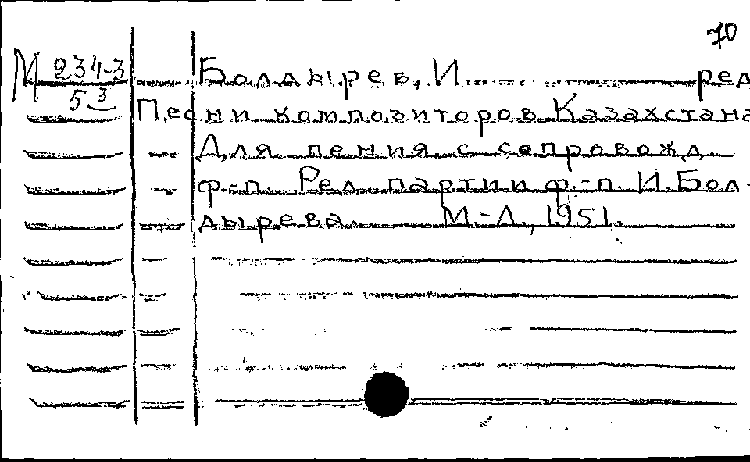 70
М 234-3 Болдырев, И. ред
5-3 Песни композиторов Казахстана
Для пения с сопровожд.
ф.-п. Ред. партии ф.-п. И. Бол-
дырева. М.-Л., 1951.